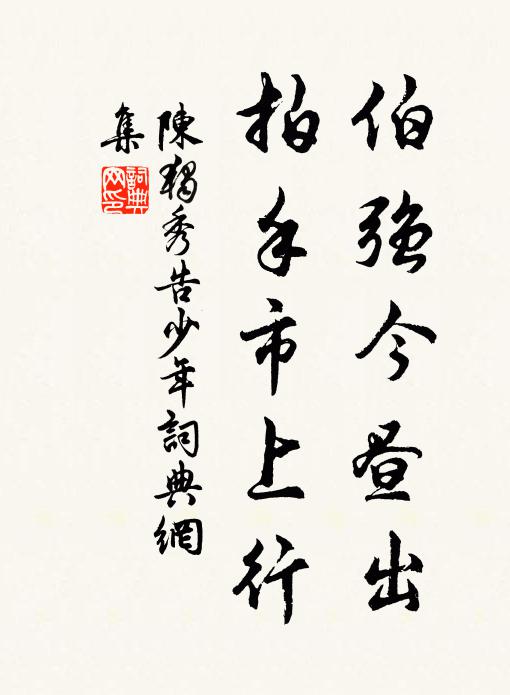 伯強今晝出
拍手市上行
陳獨秀告少年詞典網
集
詞典
网印